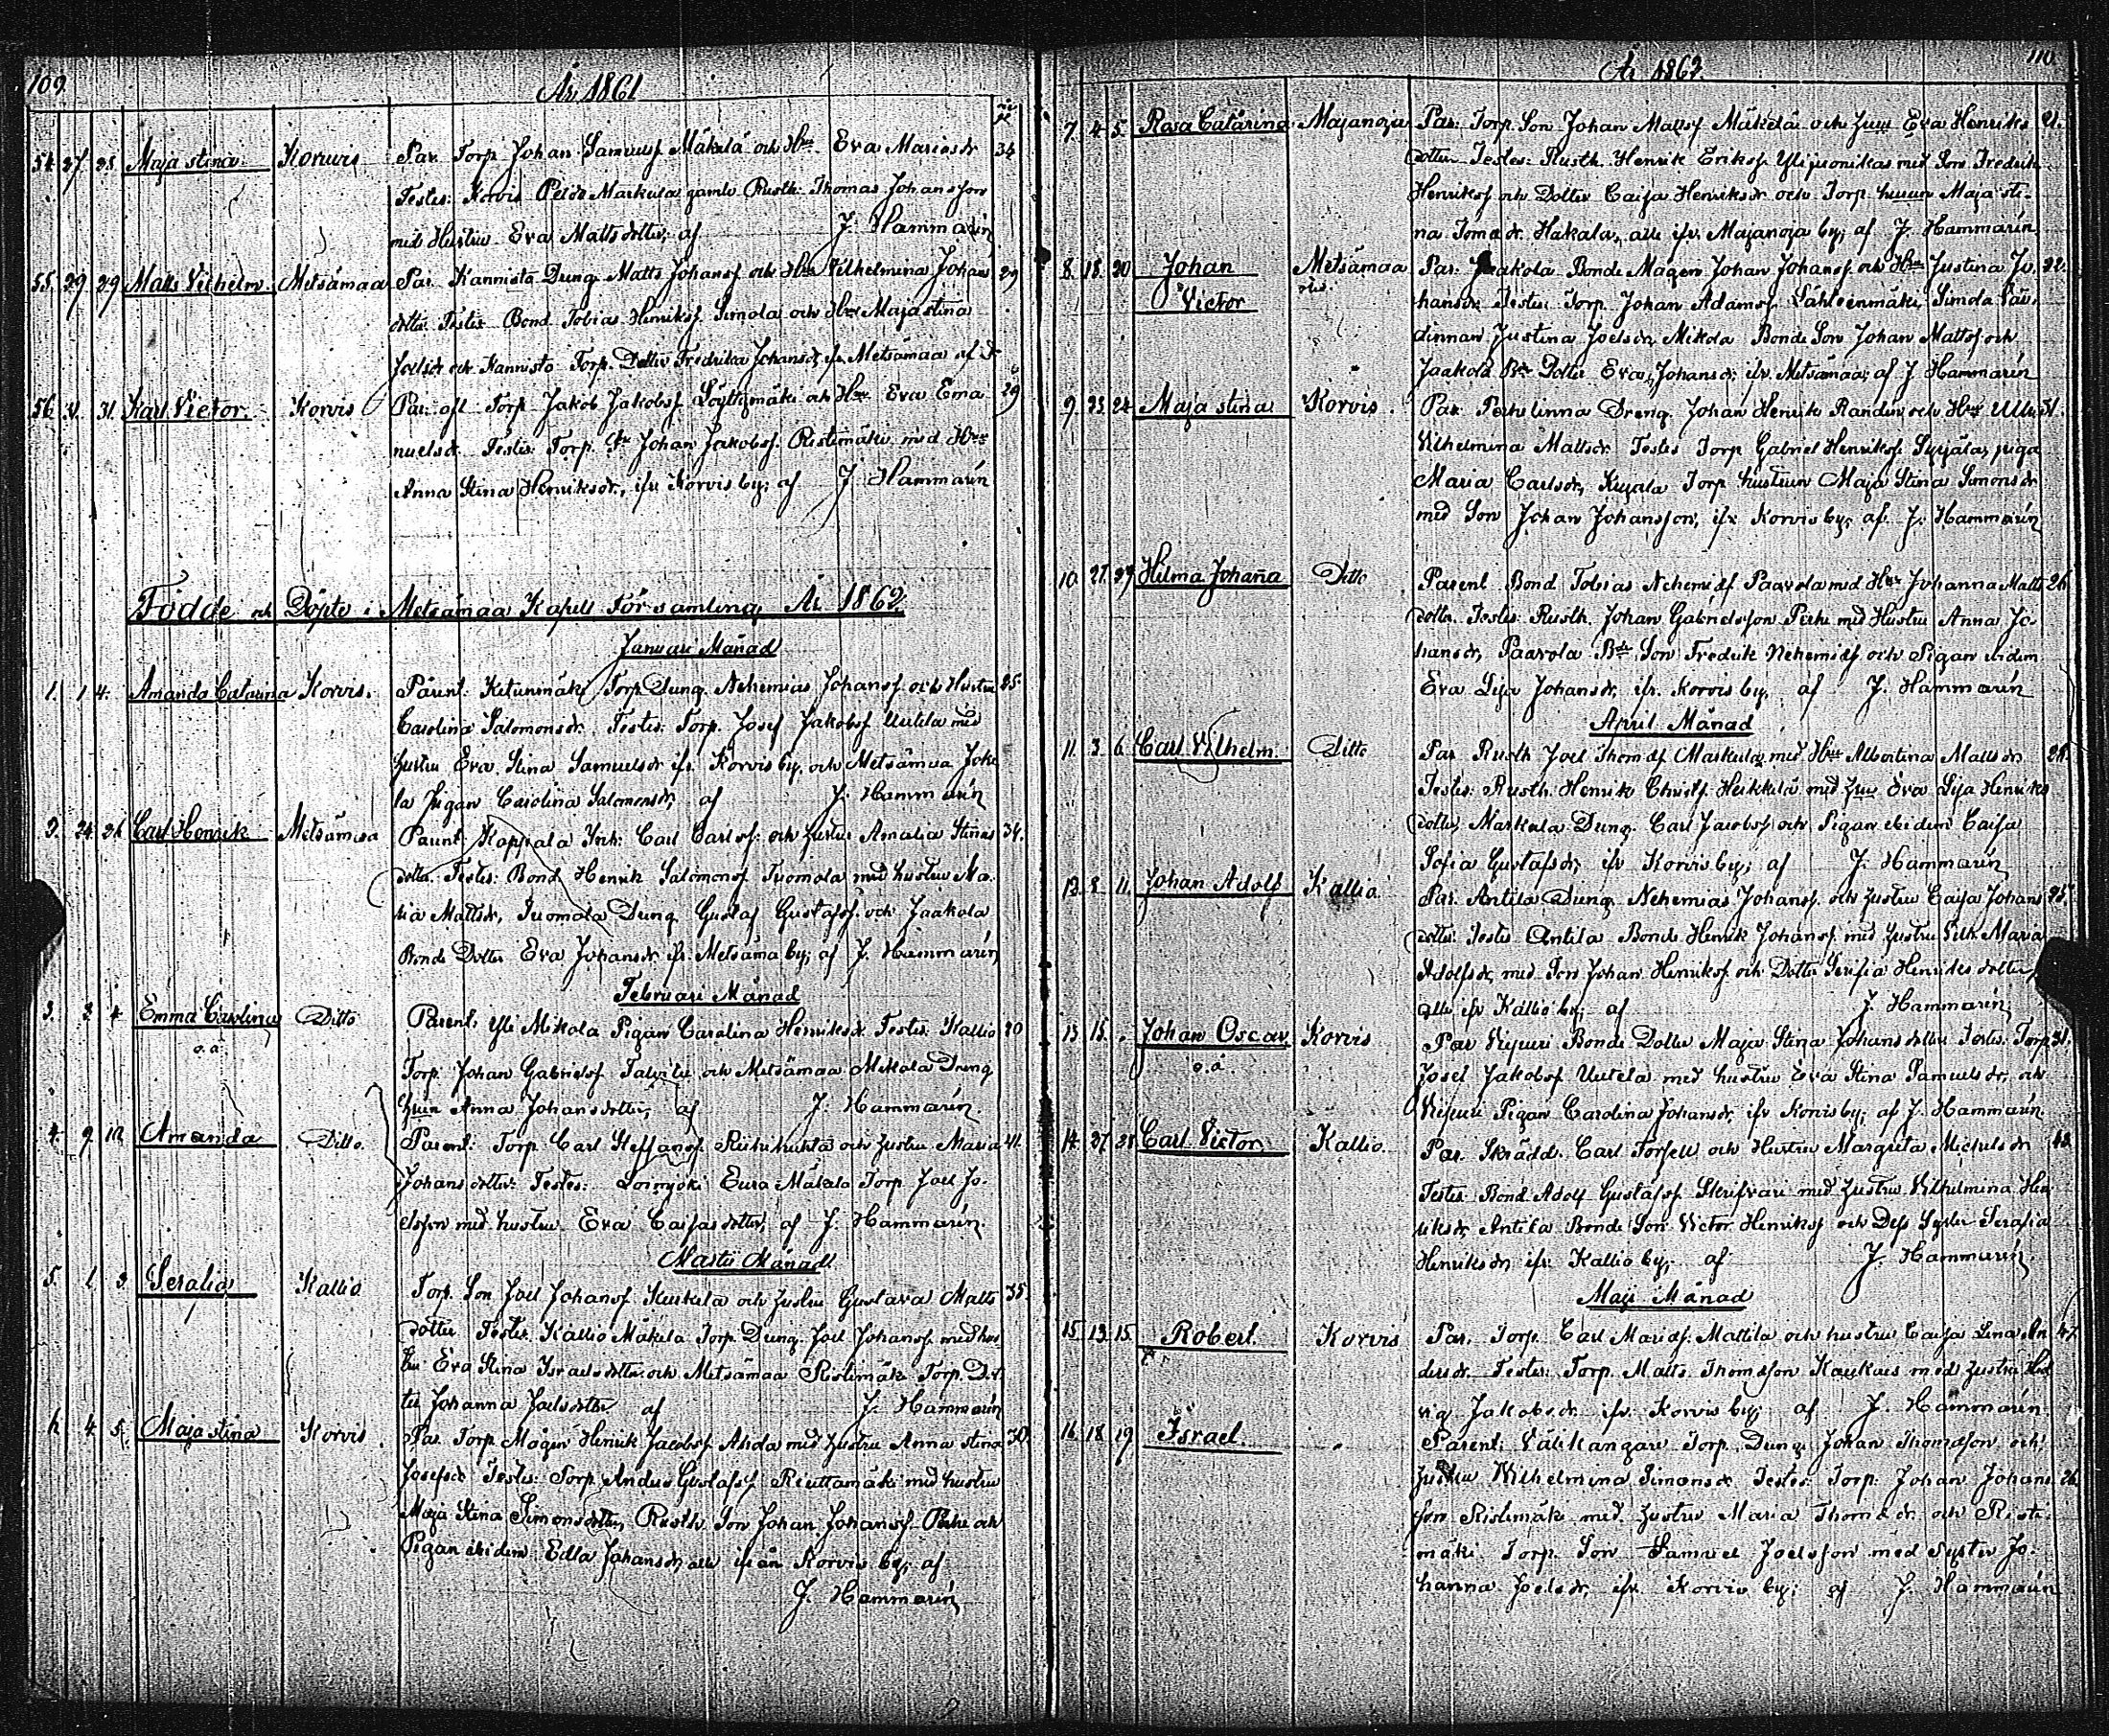 109.
År 1861
54. 27. 28. Maja Stina. Korvis Par. Torp. Johan Samuelss. Mäkelä och Hru Eva Mariasdr 34
Testes: Korvis Markula gamle Rusth: Thomas Johansson
med Hustru Eva Matts dotter, af J. Hammarén
55. 29. 29 Matts Vilhelm. Metsämaa Par. Kannisto Dreng Matts Johanss. och Hru Vilhelmina Johans 29
dotter Testes Bond. Tobias Henrikss. Simola och Hru Maja Stina
Joelsdr och Kannisto Torp. Dotter Fredrika Johansdr, ifr. Metsämaa af
56. 31. Karl Victor. Korvis Par. Torp. Jakob Jakobss. Löyttymäki och Hru Eva Ema 29
nuelsdr. Testes: Torp. Johan Jakobss. Ristimäki med Hru
Anna Stina Henriksdr, ifr Korvis by; af J. Hammarén
Födde och Döpte i Metsämaa Kapell Församling År 1862
Januari Månad
1. 1 4. Amanda Catarina Korvis. Parent: Ketunmäki Torp. Dreng. Nehemias Johanss. och Hustru 25
Carolina Salomonsdr. Testes: Torp. Josef Jakobss. Uutela med
hustru Eva Stina Samuelsdr ifr. Korvis by, och Metsämaa Joke
la Pigan Carolina Salomonsdr, af J. Hammarén
2. 24. 26 Carl Henrik Metsämaa Parent: Kappala Inh: Carl Carlss: och hustru Amalia Stinas 34.
dotter. Testes: Bond. Henrik Salomonss. Tuomola med hustru Ma
ria Mattsdr, Tuomola Dreng Gustaf Gustafss. och Jaakola
Bonde Dotter Eva Johansdr ifr. Metsämaa by; af J. Hammarén
Februari Månad
3. 3 4 Emma Carolina Ditto Parent: Yli Mikola Pigan Carolina Henriksdr. Testes: Kallio 20
o.ä. Torp. Johan Gabrielss. Talvitie och Metsämaa Mikola Dreng
hrun Anna Johansdotter, af J. Hammarén.
4. 9. 10. Amanda Ditto. Parent: Torp. Carl Steffanss. och hustru Maria 41.
Johansdotter: Testes: Loimijoki Eura Mäkälä Torp. Joel Jo-
elsson med hustru Eva Caisasdotter, af J. Hammarén.
Martii Månad
5. 1. 3. Serafia Kallio Torp. Son Joel Johanss. Keukela och hustru Gustava Matts 35.
dotter Testes. Kallio Mäkelä Torp. Dreng. Joel Johanss. med hus-
tru Eva Stina Israelsdotter och Metsämaa Ristimäki Torp. Dot
ter Johanna Joelsdotter af J. Hammarén
6. 4. 5. Maja Stina Korvis. Par. Torp. Mågen Henrik Jacobss. Ahda med hustru Anna Stina 30.
Josefsdr Testes: Torp. Anders Gustafss. Riuttamäki med hustru
Maja Stina Simonsdotter, Rusth. Son Johan Johanss. Peke och
Pigan ibidem Edla Johansdr, alla ifrån Korvis by; af
J. Hammarén
År 1862. 110.
7. 4. 5. Rosa Catarina. Majanoja Par. Torp. Son Johan Mattss. Mäkelä och Hrun Eva Henriks 21.
dotter Testes: Rusth. Henrik Erikss. Ylijuonikas med Son Fredrik
Henrikss och Dotter Caisa Henriksdr och Torp. hrunn Maja Sti-
na Tomasdr. Hakala, alle ifr. Majanoja by; af J. Hammarén
8. 18. 20 Johan Victor Metsämaa Par. Jaakola Bonde Mågen Johan Johanss. och Hru Justina Jo. 22.
hansdr. Testes: Torp. Johan Adamss. Lähteenmäki, Simola Vär
dinnan Justina Joelsdr, Mikola Bonde Son Johan Mattss och
Jaakola Bde Dotter Eva Johansdr, ifr. Metsämaa; af J. Hammarén
9. 23. 24 Maja Stina Korvis. Par. Pekelinna Dreng. Johan Henrik Randen och Hru Ulla 31.
Vilhelmina Mattsdr. Testes Torp Gabriel Henrikss. Syrjälä, piga
Maria Carlsdr, Kujala Torp hustrun Maja Stina Simonsdr
med Son Johan Johansson, ifr. Korvis by; af J. Hammarén
10. 27. 29 Hilma Johanna Ditto Parent. Bond Tobias Nehemiss Paavola med Hru Johanna Matts 26.
dotter. Testes. Rusth. Johan Gabrielsson Peke med Hustru Anna Jo-
hansdr, Paavola Bde Son Fredrik Nehemiss och Pigan ibidem
Eva Lisa Johansdr, ifr. Korvis by, af J. Hammarén
April Månad
11. 3. 6. Carl Vilhelm. Ditto Par. Rusth Joel Thomass Markula, med Hru Albertina Mattsdr 28.
Testes: Rusth. Henrik Heikkilä med hru Eva Lisa Henriks
dotter, Markula Dreng. Carl Jacobss och Pigan ibidem Caisa
Sofia Gustafsdr, ifr Korvis by; af J. Hammarén
12. 8. 11. Johan Adolf Kallio. Par. Antila Dreng. Nehemias Johanss. och hustru Caisa Johans 25.
dotter. Testes Antila Bonde Henrik Johanss. med hustru Vilh. Maria
Adolfsdr, med Son Johan Henrikss. och Dotter Serafia Henriksdotter,
alle ifr Kallio by; af J. Hammarén
13. 15. Johan Oscar Korvis Par Viipuri Bonde Dotter Maja Stina Johansdotter Testes. Torp 31.
o.ä. Josef Jakobss Uutela med hustru Eva Stina Samuelsdr, och
Viipuri Pigan Carolina Johansdr, ifr Korvis by; af J. Hammarén.
14. 27. 28 Carl Victor. Kallio. Par. Skrädd. Carl Forsell och Hustru Margreta Michelsdr 42.
Testes Bond Adolf Gustafss Skrifvari med hustru Vilhelmina Hen
riksdr, Antila Bonde Son Victor Henrikss och Dess Syster Serafia
Henriksdr, ifr. Kallio by; af J. Hammarén
Maji Månad
15. 13. 15. Robert. Korvis Par. Torp. Carl Mariass. Mattila och hustru Caisa Lena An 47.
dersdr. Testes: Torp. Matts Thomasson Kaukais med hustru Hed
vig Jakobsdr ifr. Korvis by; af J. Hammarén
16. 18. 19 Israel. Parent. Välikangare Torp. Dreng Johan Thomasson och
hustru Vilhelmina Simonsdr Testes: Torp. Johan Johans 26.
son Ristimäki med hustru Maria Thomasdr och Risti-
mäki Torp. Son Samuel Joelsson med Syster Jo-
hanna Joelsdr, ifr. Korvis by; af J. Hammarén